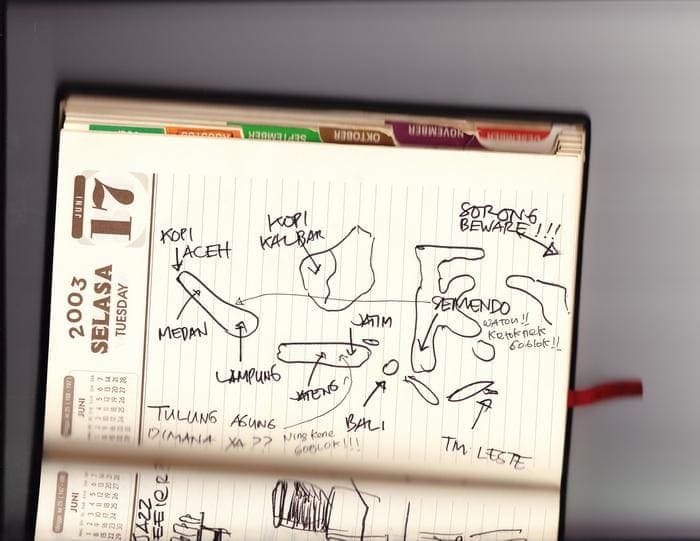 SEPTEMBER
OKTOBER
NOVEMBER
DESEMBER
JUNI
17
2003
SELASA
TUESDAY
JUNI
JUNI
KOPI
ACEH
KOPI
KALBAR
SORONG
BEWARE!!!
MEDAN
LAMPUNG
JATIM
SEMENDO
WATON!!
GOBLOK!!
JATENG
BALI
TM LESTE
TULUNG AGUNG
DIMANA YA??
Ning kene
GOBLOK!!!
JAZZ